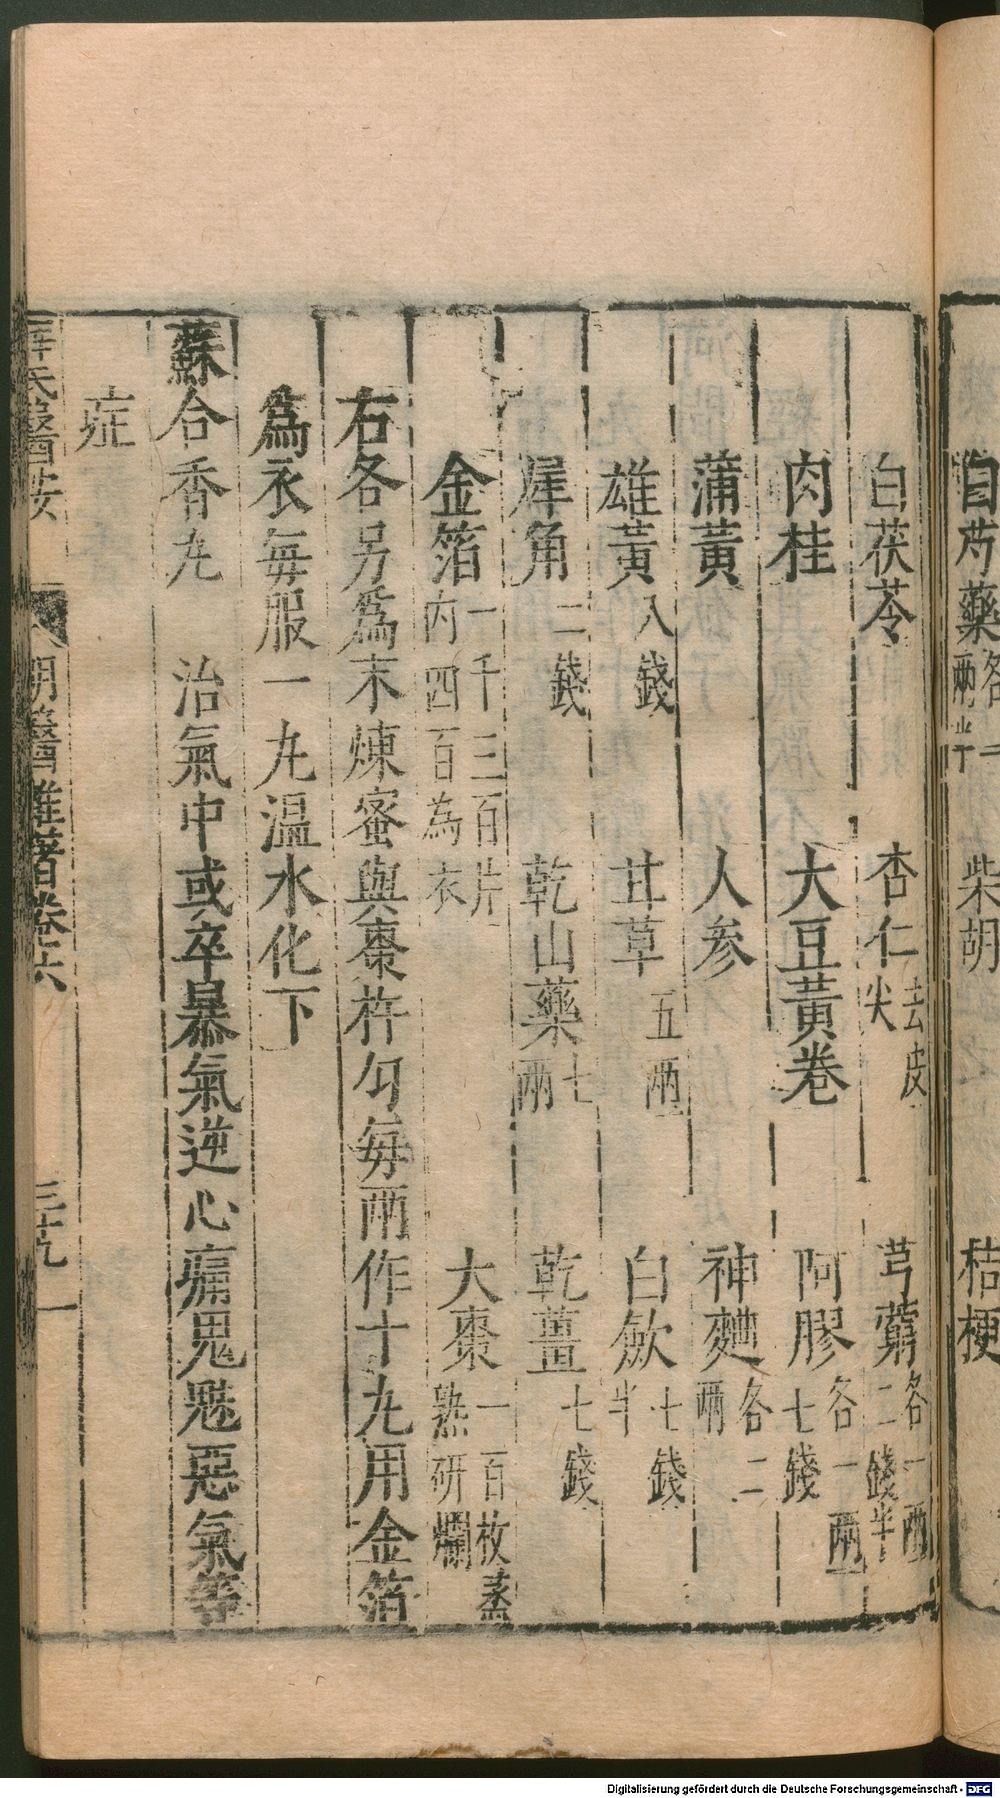 白芍藥各二兩半 柴胡 桔梗
白茯苓 杏仁去皮尖 芎藭各一兩二錢半
肉桂 大豆黃卷 阿膠各一兩七錢
蒲黃 人參 神麯各二兩
雄黃八錢 甘草五兩 白蘞七錢半
犀角二錢 乾山藥七兩 乾薑七錢
金箔一千三百片內四百為衣 大棗一百枚蒸熟研爛
右各另為末煉蜜與棗杵勻每兩作十丸用金箔
為衣每服一丸溫水化下
蘇合香丸 治氣中或卒暴氣逆心痛鬼魅惡氣等
症
薛氏醫按 明醫雜著卷六 三十九
Digitalisierung gefördert durch die Deutsche Forschungsgemeinschaft - DFG